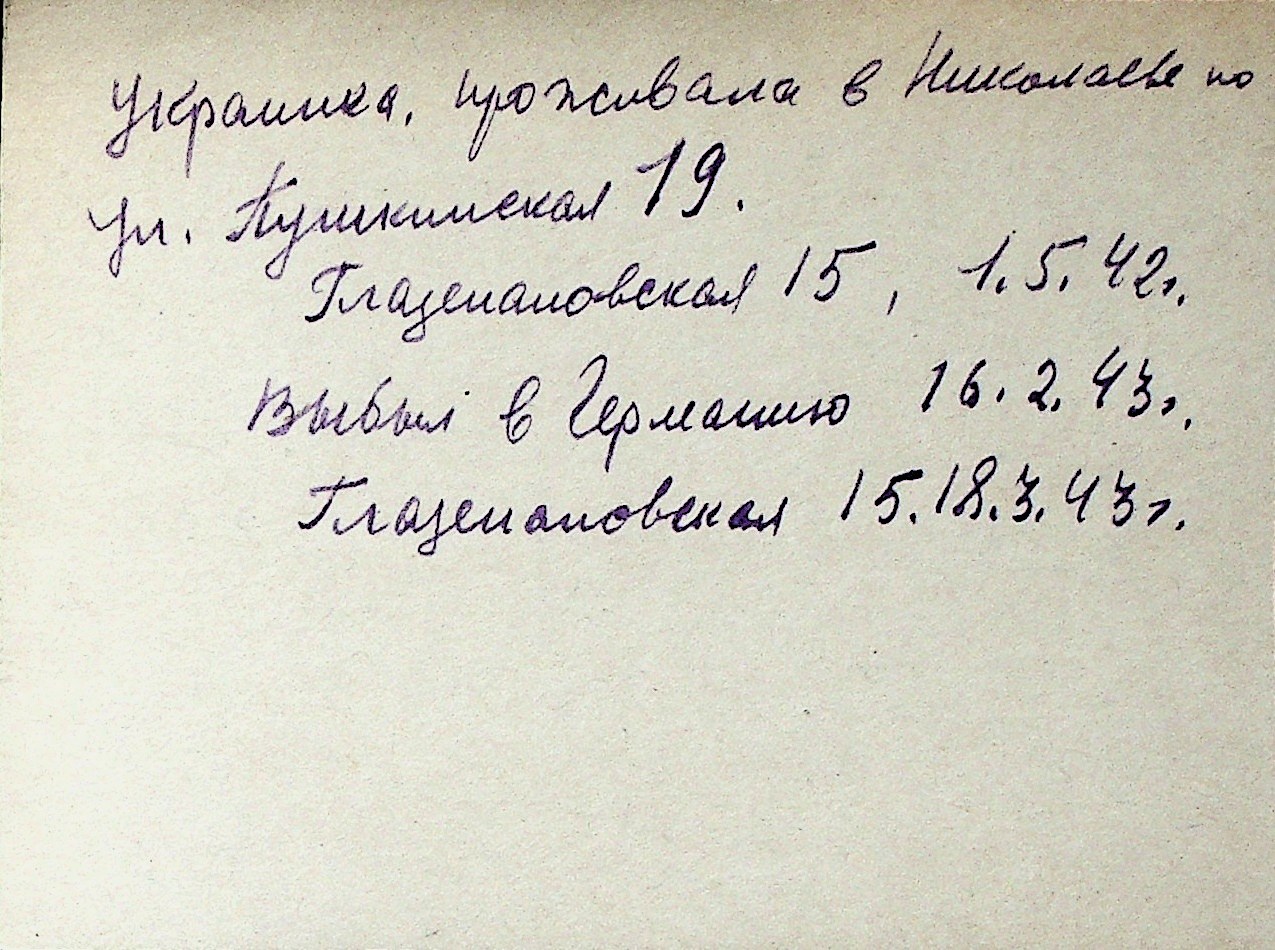 Украинка, проживала в Николаеве по
ул. Пушкинская 19.
Глазенаповская 15, 1.5.42г.
Выбыл в Германию 16.2.43г.
Глазенаповская 15.18.3.43г.